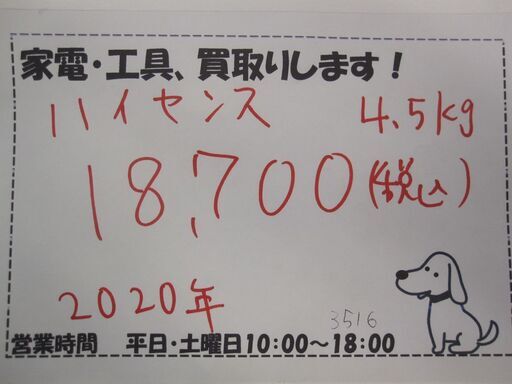 家電・工具、買取りします！
ハイセンス 4.5kg
18,700(税込)
2020年
3516
営業時間 平日・土曜日10:00～18:00